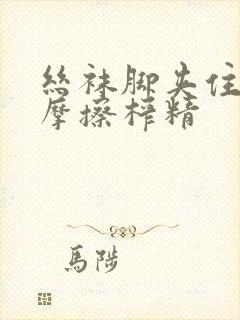 絲袜脚夹住
摩擦榨精
馬陟